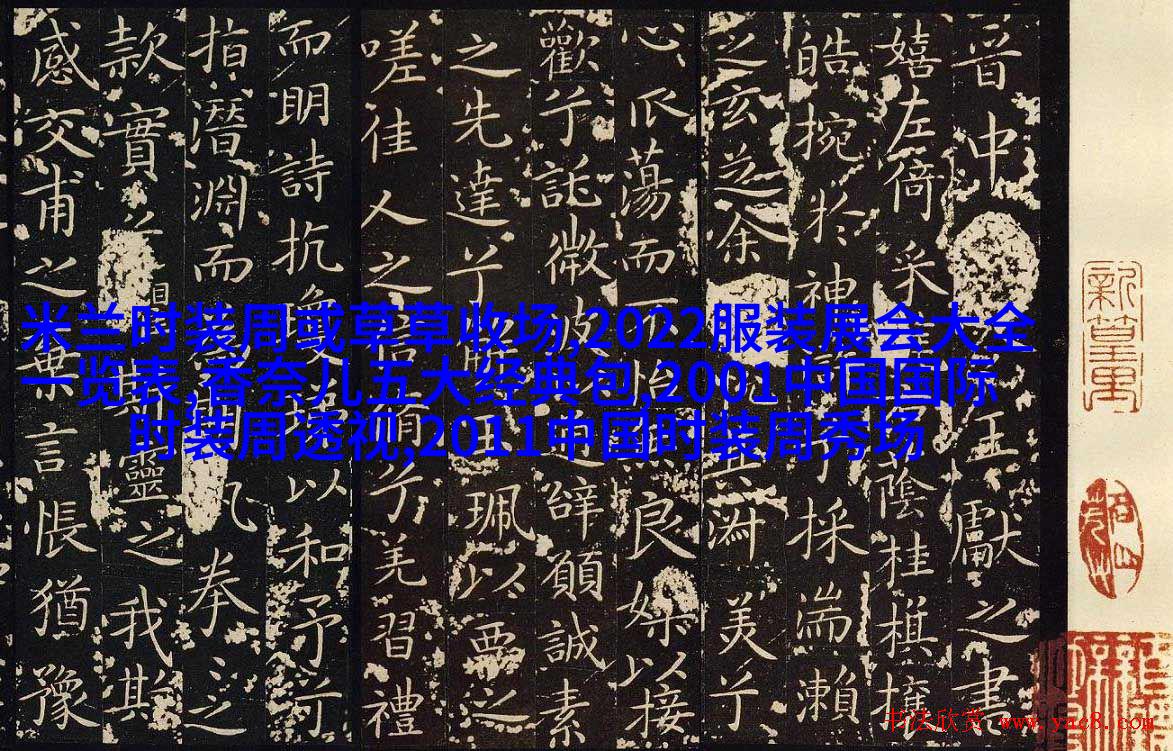 晋中王獻之書
嬉左倚采蔭桂旗攘
皓捥於神兮採湍瀨
之玄芝余淑美兮
心蕩而不怡良媒以接
歡兮託微波通辭願誠素
之先達兮玉珮以要之
嗟佳人之信脩兮羌習禮
而明詩抗瓊以和予兮
指潛淵而拳之
款實靈之我欺
感交甫之棄言悵猶豫
米兰时装周或草草收场,2022服装展会大全
一览表,香奈儿五大经典包,2001中国国际
时装周透视,2011中国时装周秀场
书法欣赏 www.yac8.com